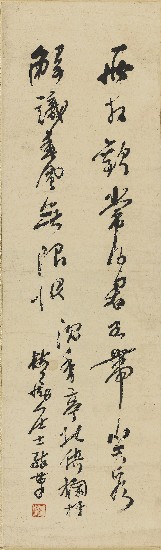 兩相歡常得君王帶笑看
解識春風無限恨
沈香亭北倚欄杆
居士